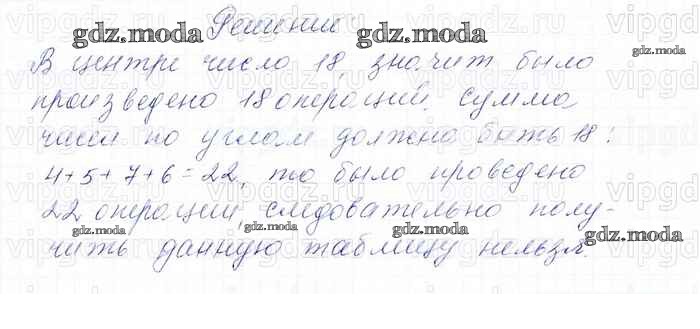 Решение
В центре число 18, значит было
произведено 18 операций, сумма
чисел по углам должна быть 18:
4+5+7+6=22, то было проведено
22 операции, следовательно полу-
чить данную таблицу нельзя.
gdz.moda
gdz.moda
gdz.moda
gdz.moda
gdz.moda
gdz.moda
gdz.moda
gdz.moda